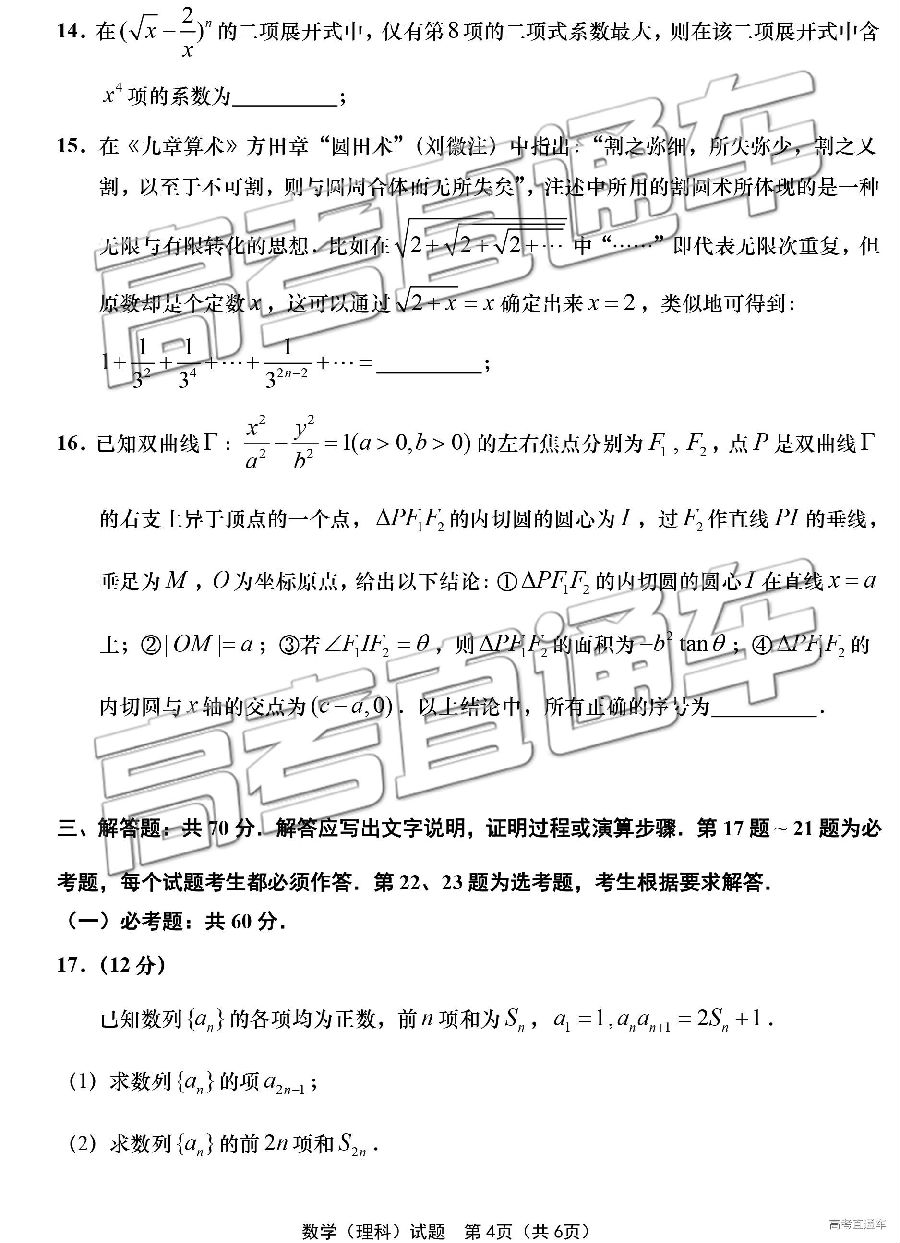 14. 在(√x − 2/x)ⁿ的二项展开式中,仅有第8项的二项式系数最大,则在该二项展开式中含
x⁴项的系数为__________;
15. 在《九章算术》方田章“圆田术”(刘徽注)中指出:“割之弥细,所失弥少,割之又
割,以至于不可割,则与圆周合体而无所失矣”,注述中所用的割圆术所体现的是一种
无限与有限转化的思想.比如在√(2+√(2+√(2+⋯)))中“……”即代表无限次重复,但
原数却是个定数x,这可以通过√(2+x)=x确定出来x=2,类似地可得到:
1+1/3²+1/3⁴+⋯+1/3²ⁿ⁻²+⋯=__________;
16. 已知双曲线Γ:x²/a²−y²/b²=1(a>0,b>0)的左右焦点分别为F₁,F₂,点P是双曲线Γ
的右支上异于顶点的一个点,ΔPF₁F₂的内切圆的圆心为I,过F₂作直线PI的垂线,
垂足为M,O为坐标原点,给出以下结论:①ΔPF₁F₂的内切圆的圆心I在直线x=a
上;②|OM|=a;③若∠F₁IF₂=θ,则ΔPF₁F₂的面积为−b²tanθ;④ΔPF₁F₂的
内切圆与x轴的交点为(c−a,0).以上结论中,所有正确的序号为__________.
三、解答题:共70分.解答应写出文字说明,证明过程或演算步骤.第17题~21题为必
考题,每个试题考生都必须作答.第22、23题为选考题,考生根据要求解答.
(一)必考题:共60分.
17.(12分)
已知数列{aₙ}的各项均为正数,前n项和为Sₙ,a₁=1,aₙaₙ₊₁=2Sₙ+1.
(1)求数列{aₙ}的项a₂ₙ₋₁;
(2)求数列{aₙ}的前2n项和S₂ₙ.
数学(理科)试题 第4页(共6页)
高考直通车
高考直通车
高考直通车